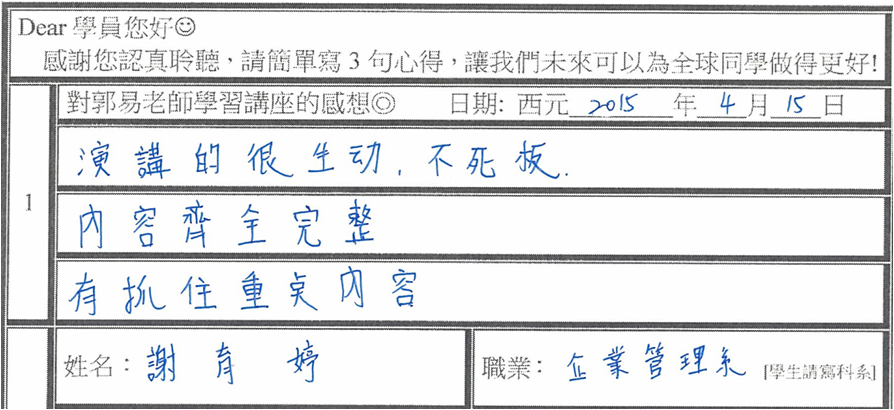 Dear 學員您好☺
感謝您認真聆聽，請簡單寫 3 句心得，讓我們未來可以為全球同學做得更好!
對郭易老師學習講座的感想◎ 日期: 西元 2015 年 4 月 15 日
1
演講的很生动，不死板.
內容齊全完整
有抓住重点內容
姓名：謝育婷
職業：企業管理系 [學生請寫科系]